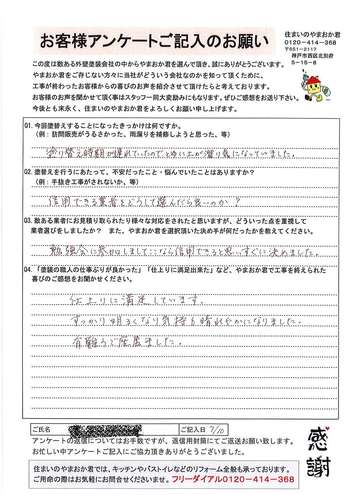 お客様アンケートご記入のお願い
住まいのやまおか君
0120-414-368
〒651-2117
神戸市西区北別府
5-15-8
この度は数ある外壁塗装会社の中からやまおか君を選んで頂き、誠にありがとうございます。
やまおか君をご存じない方々に当社がどういう会社なのかを知って頂くために、
工事が終わったお客様からの喜びのお声を紹介させて頂けたらと考えております。
お客様のお声を聞かせて頂く事はスタッフ一同大変励みにもなります。ぜひご感想をお送り下さい。
今後とも末永く、住まいのやまおか君をよろしくお願い申し上げます。
Q1. 今回塗替えすることになったきっかけは何ですか。
(例：訪問販売がうるさかった、雨漏りを補修しようと思った、等)
塗り替え時期が遅れていたので とゆに土が溜り気になっていました。
Q2. 塗替えを行うにあたって、不安だったこと・悩んでいたことはありますか？
(例：手抜き工事がされないか、等)
信用できる業者をどうして選んだら良いのか？
Q3. 数ある業者にお見積り取られたり様々な対応をされたと思いますが、どういった点を重視して
業者選びをしましたか？ また、やまおか君を選択頂いた決め手が何だったかを教えてください。
勉強会に参加しましてここなら信用できると思いすぐに決めました。
Q4. 「塗装の職人の仕事ぶりが良かった」「仕上りに満足出来た」など、やまおか君で工事を終えられた
喜びのご感想をお聞かせください。
仕上りに満足しています。
すっかり明るくなり気持も晴れやかになりました。
有難うご座居ました。
ご氏名
ご記入日 7/10
アンケートの返信についてはお手数ですが、返信用封筒にてご返送お願い致します。
お忙しい中アンケートにご協力頂きありがとうございました。
感謝
住まいのやまおか君では、キッチンやバストイレなどのリフォーム全般も承っております。
ご用命の際はお気軽にお問合せくださいませ。フリーダイアル0120-414-368